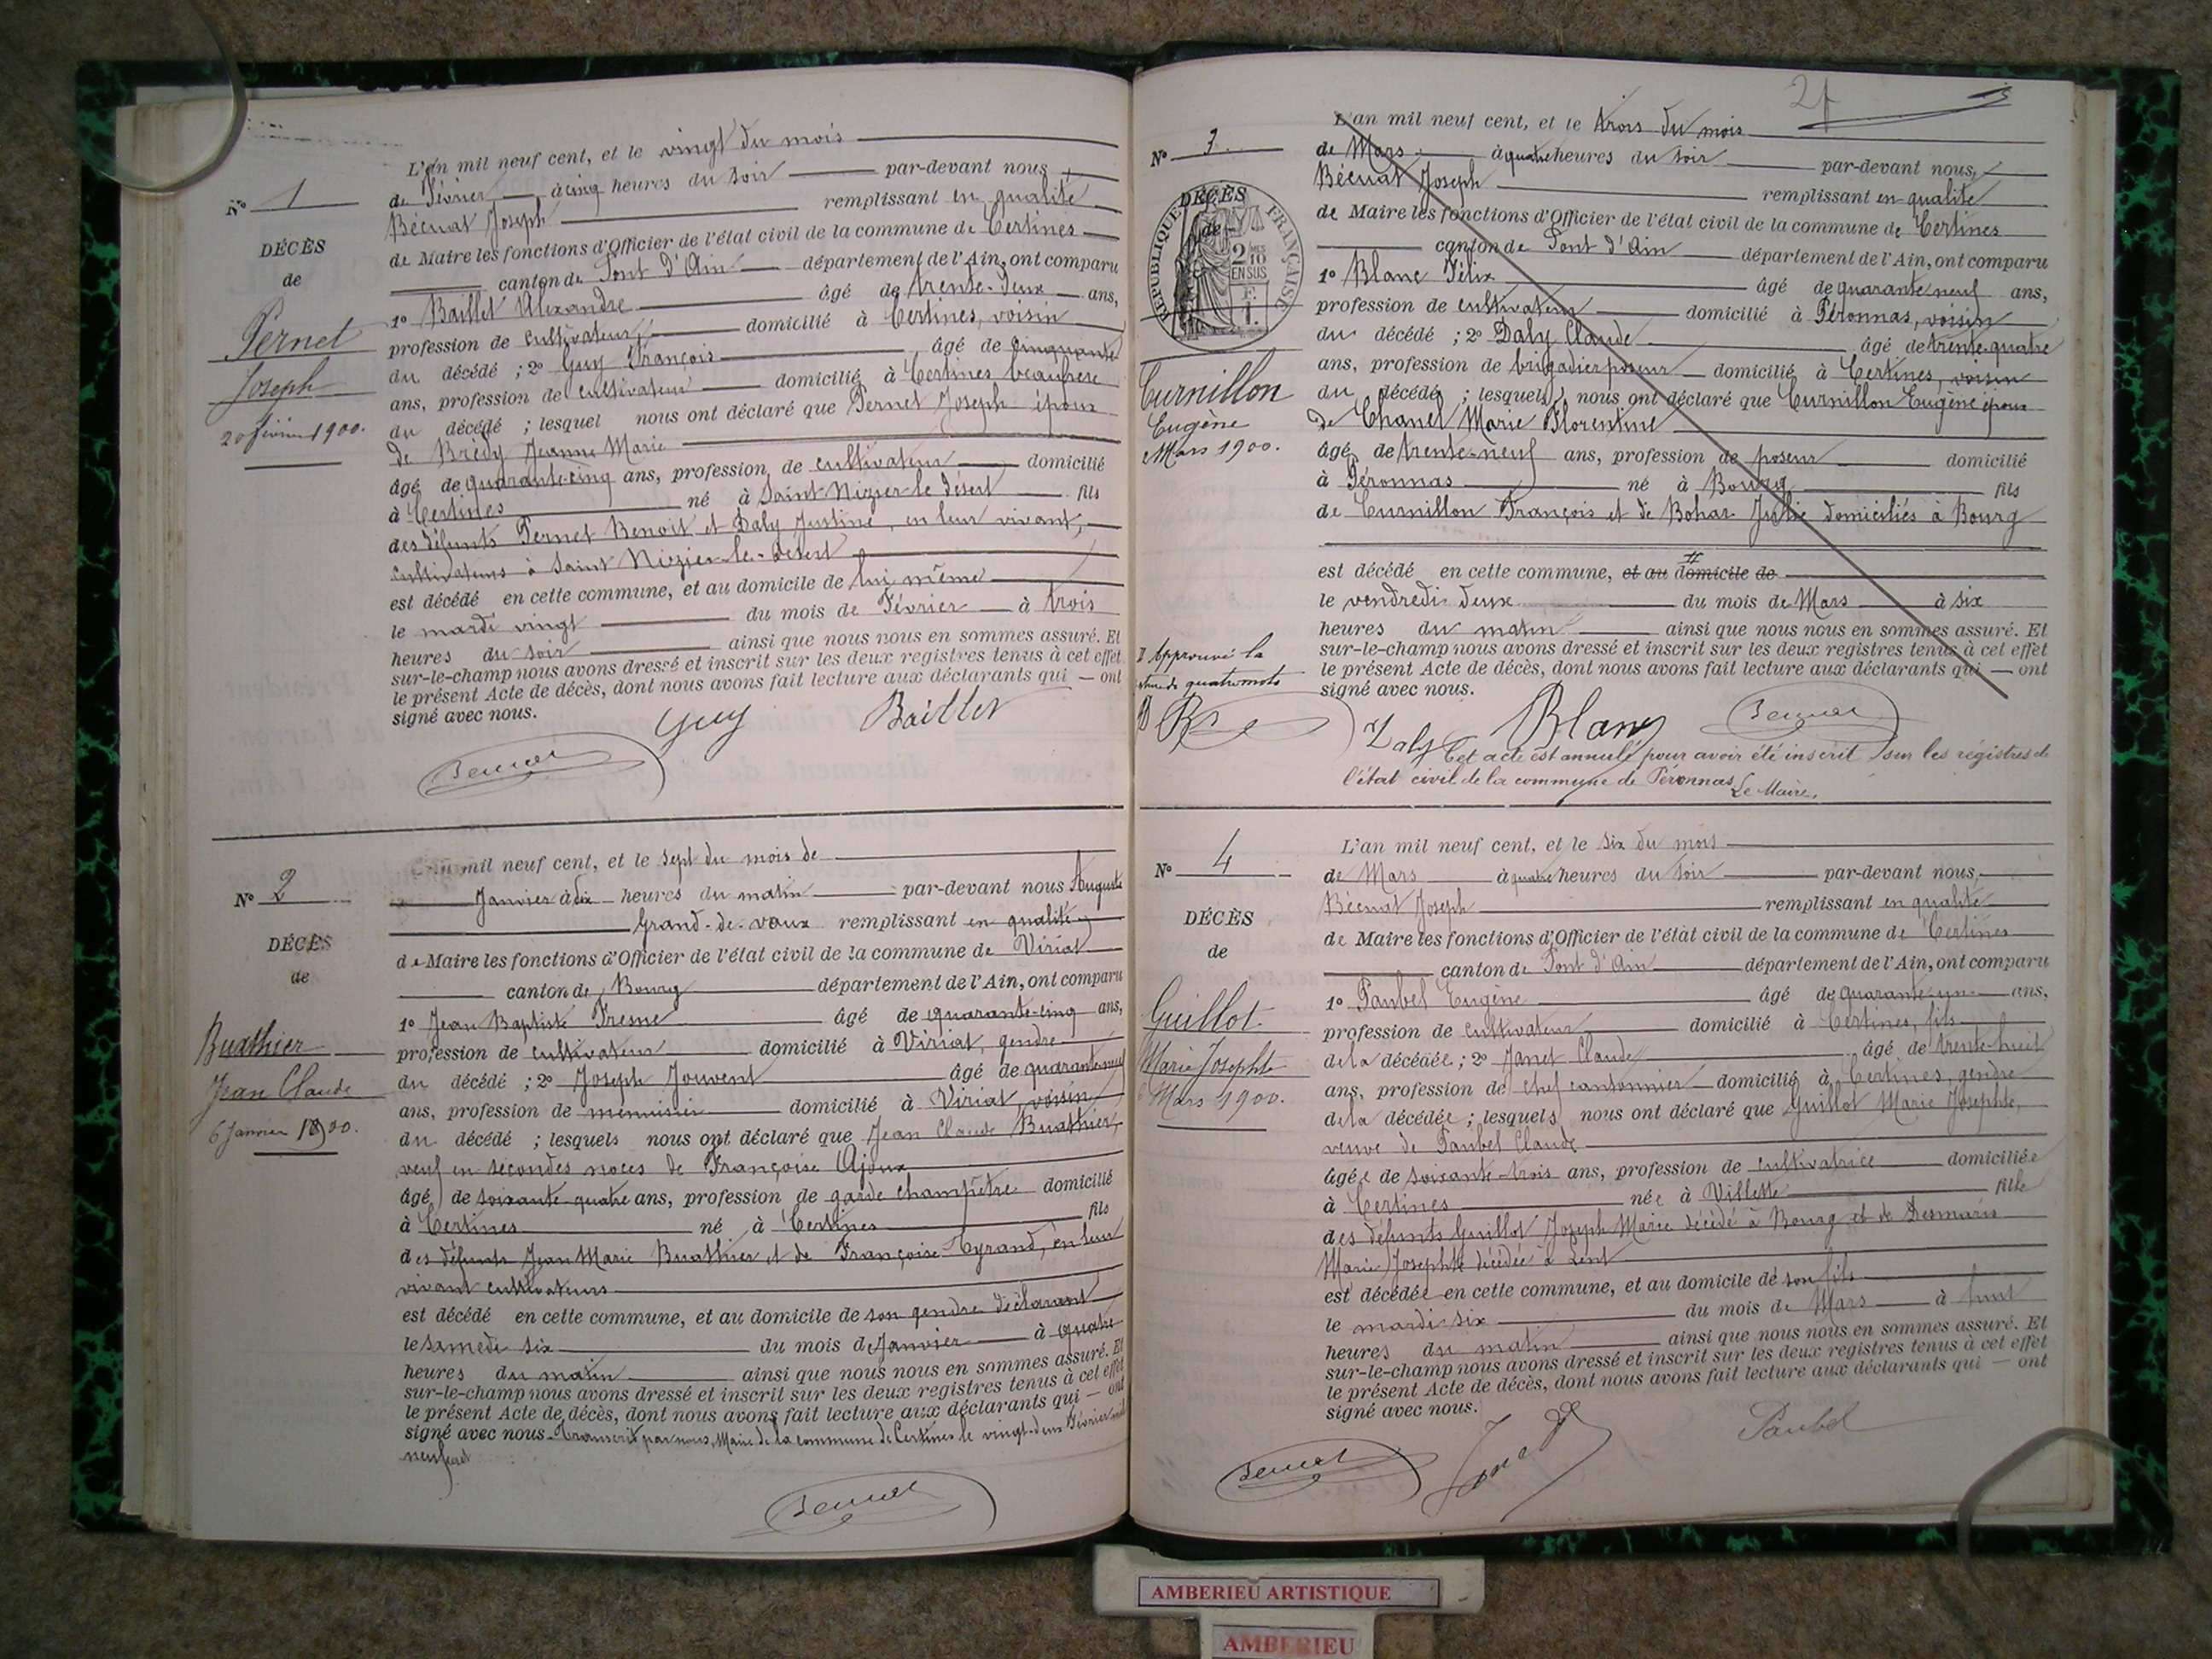 L'an mil neuf cent, et le vingt du mois
N° 1
de Février à cinq heures du soir par-devant nous
Bécuat Joseph remplissant en qualité
de Maire les fonctions d'Officier de l'état civil de la commune de Certines
canton de Pont d'Ain département de l'Ain, ont comparu
DÉCÈS
de
Pernet
Joseph
20 février 1900.
1° Baillet Alexandre âgé de trente-deux ans,
profession de cultivateur, domicilié à Certines, voisin
du décédé ; 2° Guy François âgé de cinquante
ans, profession de cultivateur domicilié à Certines beaufrère
du décédé ; lesquel nous ont déclaré que Pernet Joseph époux
de Brédy Jeanne Marie
âgé de quarante-cinq ans, profession de cultivateur domicilié
à Certines né à Saint-Nizier-le-Désert fils
des défunts Pernet Benoit et Daly Justine, en leur vivant,
cultivateurs à Saint Nizier-le-Désert
est décédé en cette commune, et au domicile de lui même
le mardi vingt du mois de Février à trois
heures du soir ainsi que nous nous en sommes assuré. Et
sur-le-champ nous avons dressé et inscrit sur les deux registres tenus à cet effet
le présent Acte de décès, dont nous avons fait lecture aux déclarants qui — ont
signé avec nous.
Guy Baillet
Bécuat
L'an mil neuf cent, et le sept du mois de
N° 2
Janvier à dix heures du matin par-devant nous Auguste
Grand-de-vaux remplissant en qualité
de Maire les fonctions d'Officier de l'état civil de la commune de Viriat
canton de Bourg département de l'Ain, ont comparu
DÉCÈS
de
Buathier
Jean Claude
6 Janvier 1900.
1° Jean Baptiste Fresne âgé de quarante-cinq ans,
profession de cultivateur domicilié à Viriat, gendre
du décédé ; 2° Joseph Jouvent âgé de quarante neuf
ans, profession de menuisier domicilié à Viriat voisin
du décédé ; lesquels nous ont déclaré que Jean Claude Buathier,
veuf en secondes noces de Françoise Ajoux
âgé de soixante quatre ans, profession de garde champêtre domicilié
à Certines né à Certines fils
des défunts Jean Marie Buathier et de Françoise Cyrand, en leur
vivant cultivateurs
est décédé en cette commune, et au domicile de son gendre déclarant
le samedi six du mois de Janvier à quatre
heures du matin ainsi que nous nous en sommes assuré. Et
sur-le-champ nous avons dressé et inscrit sur les deux registres tenus à cet effet
le présent Acte de décès, dont nous avons fait lecture aux déclarants qui — ont
signé avec nous. Transcrit par nous, Maire de la commune de Certines le vingt-deux Février mil
neuf cent
Bécuat
2f
L'an mil neuf cent, et le trois du mois
N° 3
de Mars à quatre heures du soir par-devant nous,
Bécuat Joseph remplissant en qualité
de Maire les fonctions d'Officier de l'état civil de la commune de Certines
canton de Pont d'Ain département de l'Ain, ont comparu
DÉCÈS
de
RÉPUBLIQUE FRANÇAISE
2 MES
10
EN SUS
F.
1.
Curnillon
Eugène
Mars 1900.
1° Blanc Félix âgé de quarante neuf ans,
profession de cultivateur domicilié à Péronnas, voisin
du décédé ; 2° Daly Claude âgé de trente-quatre
ans, profession de brigadier poseur domicilié à Certines, voisin
du décédé ; lesquels nous ont déclaré que Curnillon Eugène époux
de Chanel Marie Florentine
âgé de trente-neuf ans, profession de poseur domicilié
à Péronnas né à Bourg fils
de Curnillon François et de Bohar Julie domiciliés à Bourg
est décédé en cette commune, et au domicile de
le vendredi deux du mois de Mars à six
heures du matin ainsi que nous nous en sommes assuré. Et
sur-le-champ nous avons dressé et inscrit sur les deux registres tenus à cet effet
le présent Acte de décès, dont nous avons fait lecture aux déclarants qui — ont
signé avec nous.
Approuvé la
quatre mots
Daly Blanc Bécuat
Cet acte est annulé pour avoir été inscrit sur les registres de
l'état civil de la commune de Péronnas Le Maire,
L'an mil neuf cent, et le six du mois
N° 4
de Mars à quatre heures du soir par-devant nous,
Bécuat Joseph remplissant en qualité
de Maire les fonctions d'Officier de l'état civil de la commune de Certines
canton de Pont d'Ain département de l'Ain, ont comparu
DÉCÈS
de
Guillot
Marie Josephte
Mars 1900.
1° Paubel Eugène âgé de quarante-un ans,
profession de cultivateur domicilié à Certines, fils
de la décédée ; 2° Janet Claude âgé de trente-huit
ans, profession de chef cantonnier domicilié à Certines, gendre
de la décédée ; lesquels nous ont déclaré que Guillot Marie Josephte,
veuve de Paubel Claude
âgée de soixante-trois ans, profession de cultivatrice domiciliée
à Certines née à Villette fille
des défunts Guillot Joseph Marie décédé à Bourg et de Desmaris
Marie Josephte décédée à Lent
est décédée en cette commune, et au domicile de son fils
le mardi six du mois de Mars à huit
heures du matin ainsi que nous nous en sommes assuré. Et
sur-le-champ nous avons dressé et inscrit sur les deux registres tenus à cet effet
le présent Acte de décès, dont nous avons fait lecture aux déclarants qui — ont
signé avec nous.
Bécuat Janet Paubel
AMBERIEU ARTISTIQUE
AMBERIEU